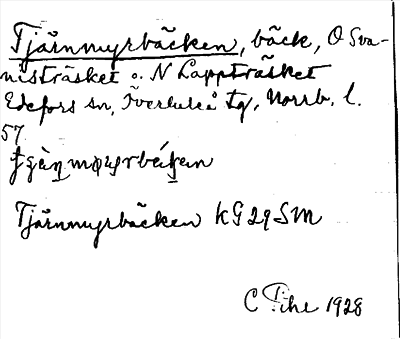 Tjärnmyrbäcken, bäck, O Sva-
nisträsket o. N Lappträsket
Edefors sn, Överluleå tg, Norrb. l.
57
Tjärnmyrbäcken KG 29 SM
C Pihl 1928